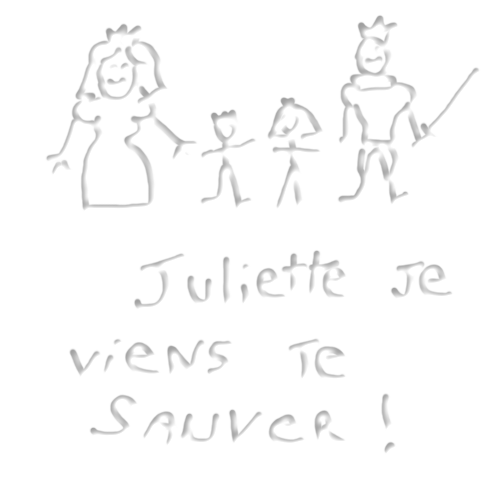 Juliette je
viens te
sauver !